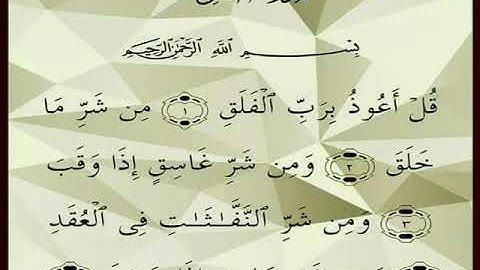 بِسْمِ اللَّهِ الرَّحْمَٰنِ الرَّحِيمِ
قُلْ أَعُوذُ بِرَبِّ ٱلْفَلَقِ ١ مِن شَرِّ مَا
خَلَقَ ٢ وَمِن شَرِّ غَاسِقٍ إِذَا وَقَبَ
٣ وَمِن شَرِّ ٱلنَّفَّٰثَٰتِ فِى ٱلْعُقَدِ